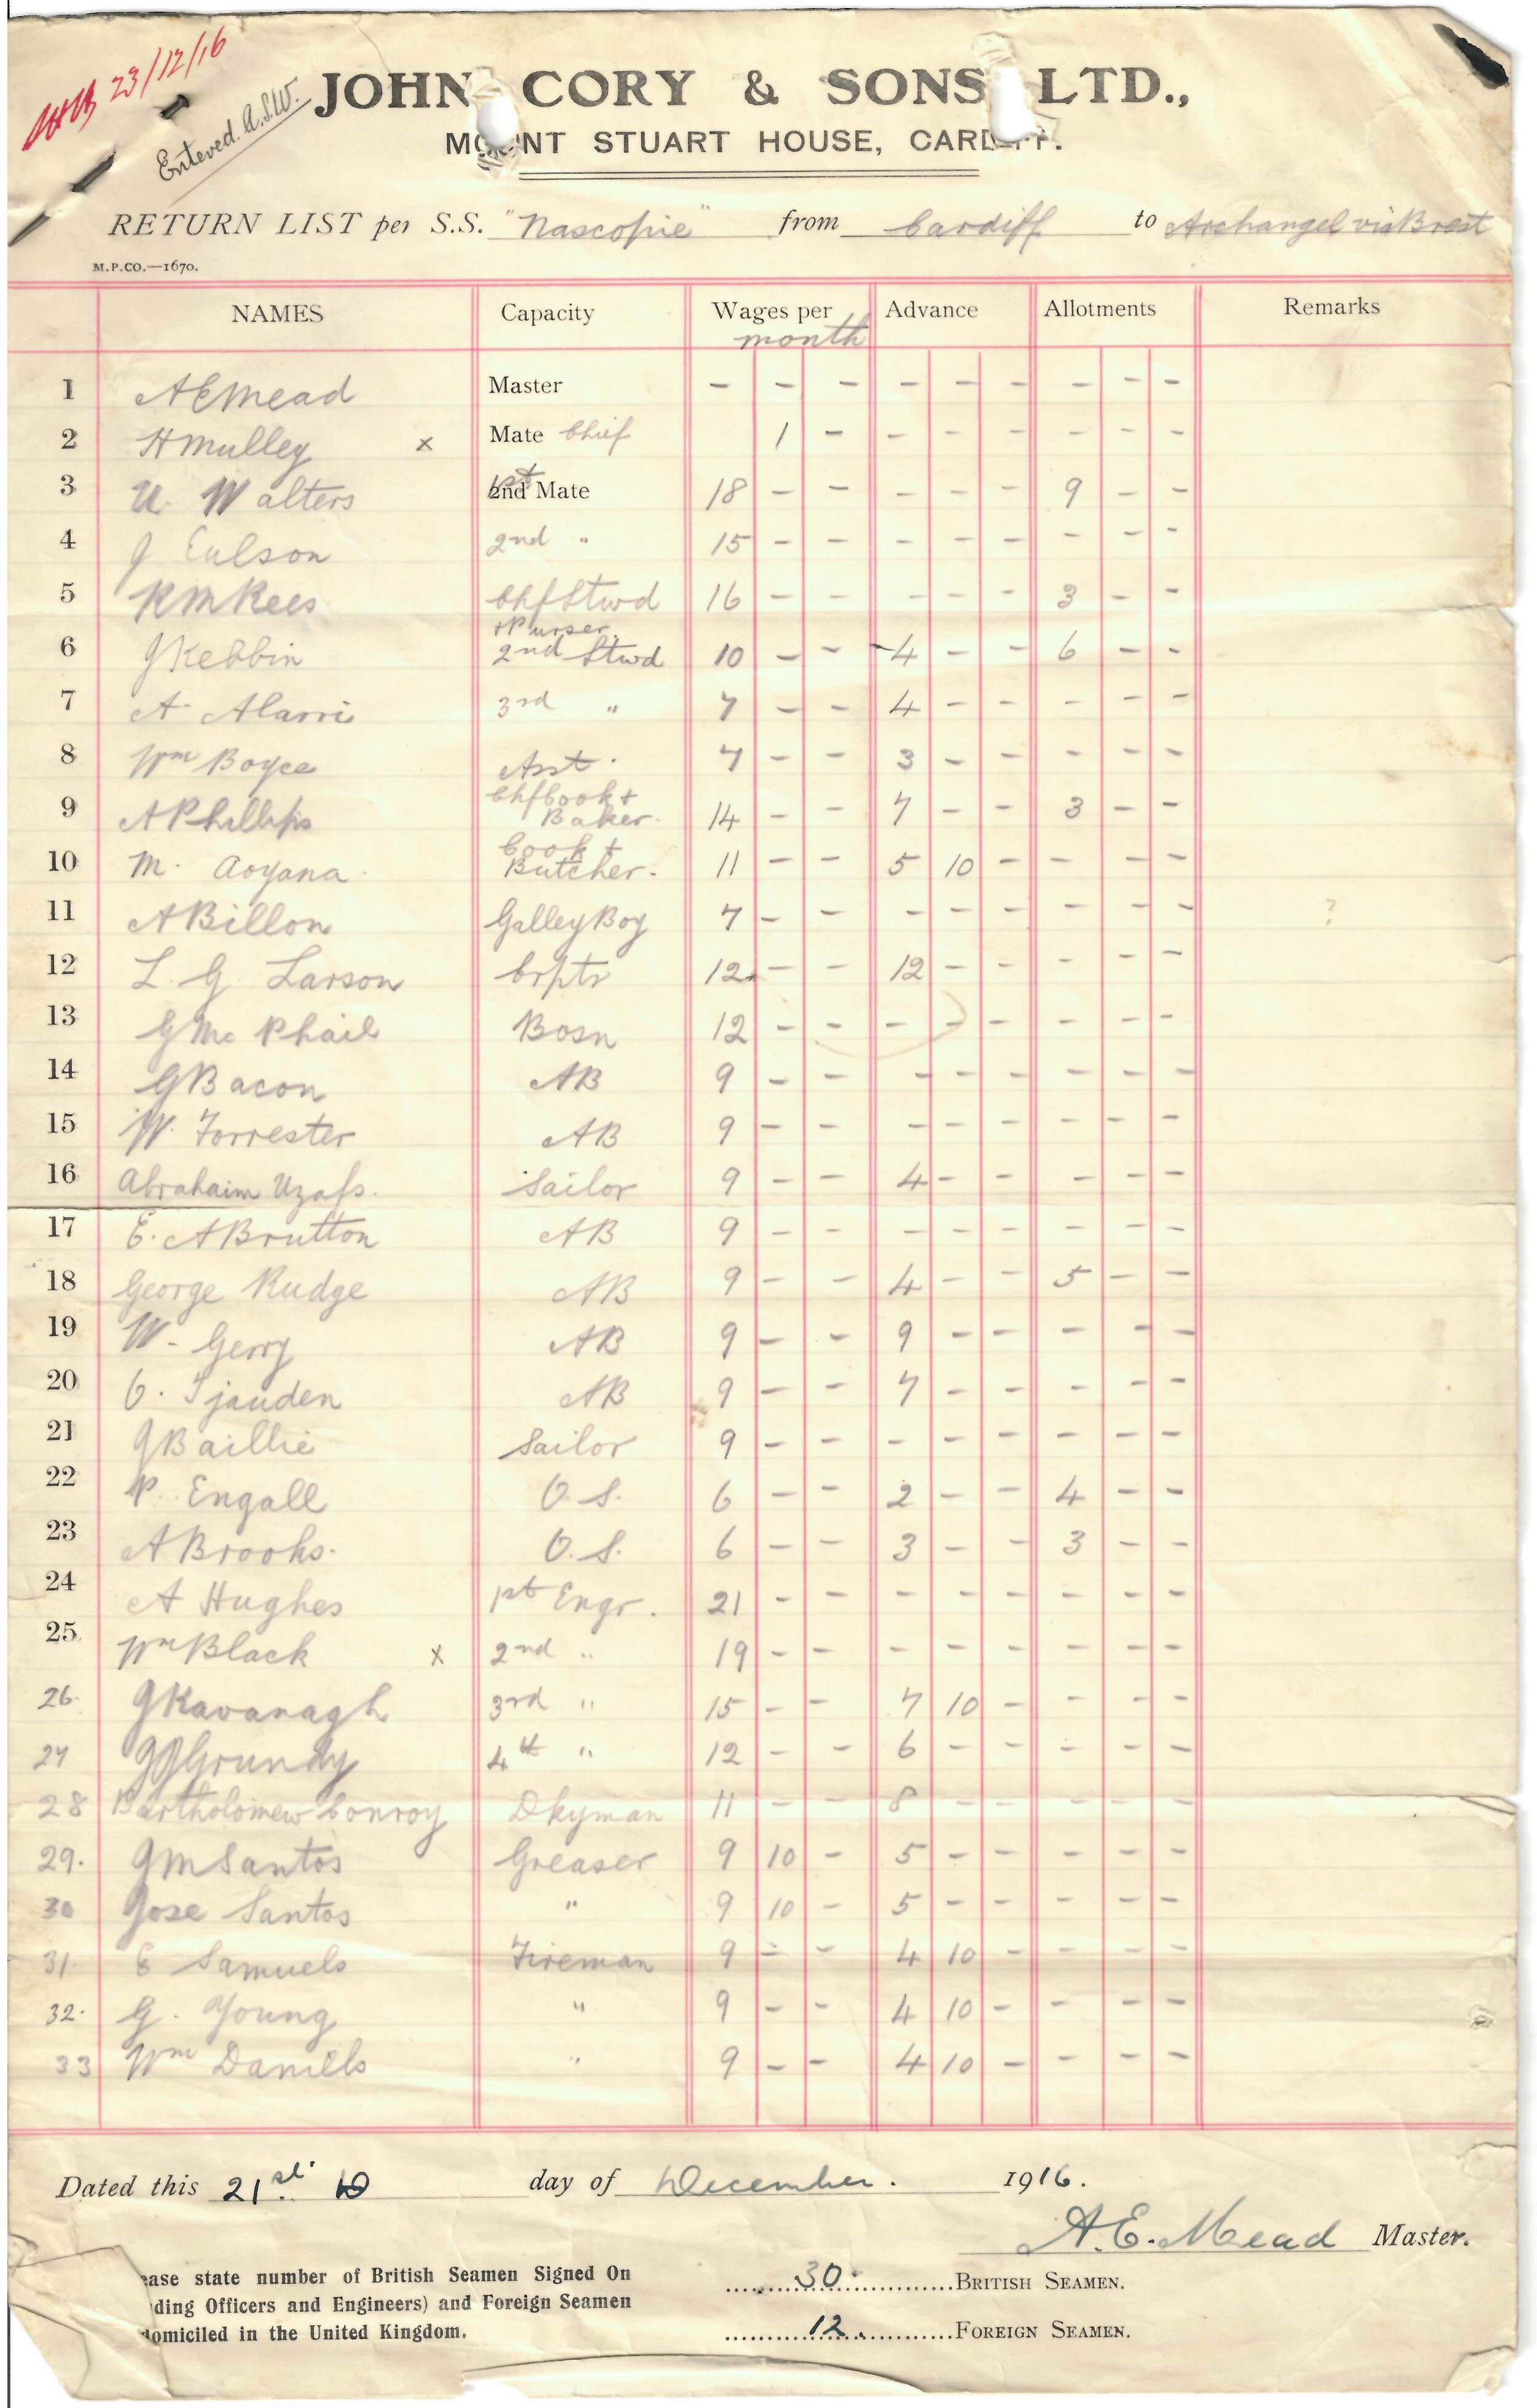 23/12/16
Entered. A.S.W.
JOHN CORY & SONS LTD.,
MOUNT STUART HOUSE, CARDIFF.
RETURN LIST per S.S. "Nascopie" from Cardiff to Archangel via Brest
M.P.CO.—1670.
NAMES Capacity Wages per month Advance Allotments Remarks
1 A E Mead Master - - - - - - - - -
2 H Mulley x Mate Chief 1 - - - - - - -
3 U. Walters 1st 2nd Mate 18 - - - - - 9 - -
4 J Eulson 2nd " 15 - - - - - - - -
5 R M Rees Chf Stwd + Purser 16 - - - - - 3 - -
6 J Kebbin 2nd Stwd 10 - - 4 - - 6 - -
7 A. Alarri 3rd " 7 - - 4 - - - - -
8 Wm Boyce Asst. 7 - - 3 - - - - -
9 A Phillips Chf Cook + Baker. 14 - - 7 - - 3 - -
10 M. Aoyana. Cook + Butcher. 11 - - 5 10 - - - -
11 A Billon Galley Boy 7 - - - - - - - - ?
12 L. G. Larson Crptr 12 - - 12 - - - - -
13 G Mc Phail Bosn 12 - - - - - - - -
14 G Bacon AB 9 - - - - - - - -
15 W. Forrester AB 9 - - - - - - - -
16 Abrahaim Sailor 9 - - 4 - - - - -
17 E. A Brutton AB 9 - - - - - - - -
18 George Rudge AB 9 - - 4 - - 5 - -
19 W. Gerry AB 9 - - 9 - - - - -
20 O. Tjauden AB 9 - - 7 - - - - -
21 J Baillie Sailor 9 - - - - - - - -
22 P. Engall O.S. 6 - - 2 - - 4 - -
23 A Brooks. O.S. 6 - - 3 - - 3 - -
24 A Hughes 1st Engr. 21 - - - - - - - -
25. Wm Black x 2nd " 19 - - - - - - - -
26. J Kavanagh 3rd " 15 - - 7 10 - - - -
27 J J Grundy 4th " 12 - - 6 - - - - -
28 Bartholomew Conroy Dkyman 11 - - 8 - - - - -
29. J M Santos Greaser 9 10 - 5 - - - - -
30 Jose Santos " 9 10 - 5 - - - - -
31. E Samuels Fireman 9 - - 4 10 - - - -
32. G. Young " 9 - - 4 10 - - - -
33 Wm Daniels " 9 - - 4 10 - - - -
Dated this 21st. day of December. 1916.
A. E. Mead Master.
ease state number of British Seamen Signed On
ding Officers and Engineers) and Foreign Seamen
domiciled in the United Kingdom.
30 BRITISH SEAMEN.
12 FOREIGN SEAMEN.